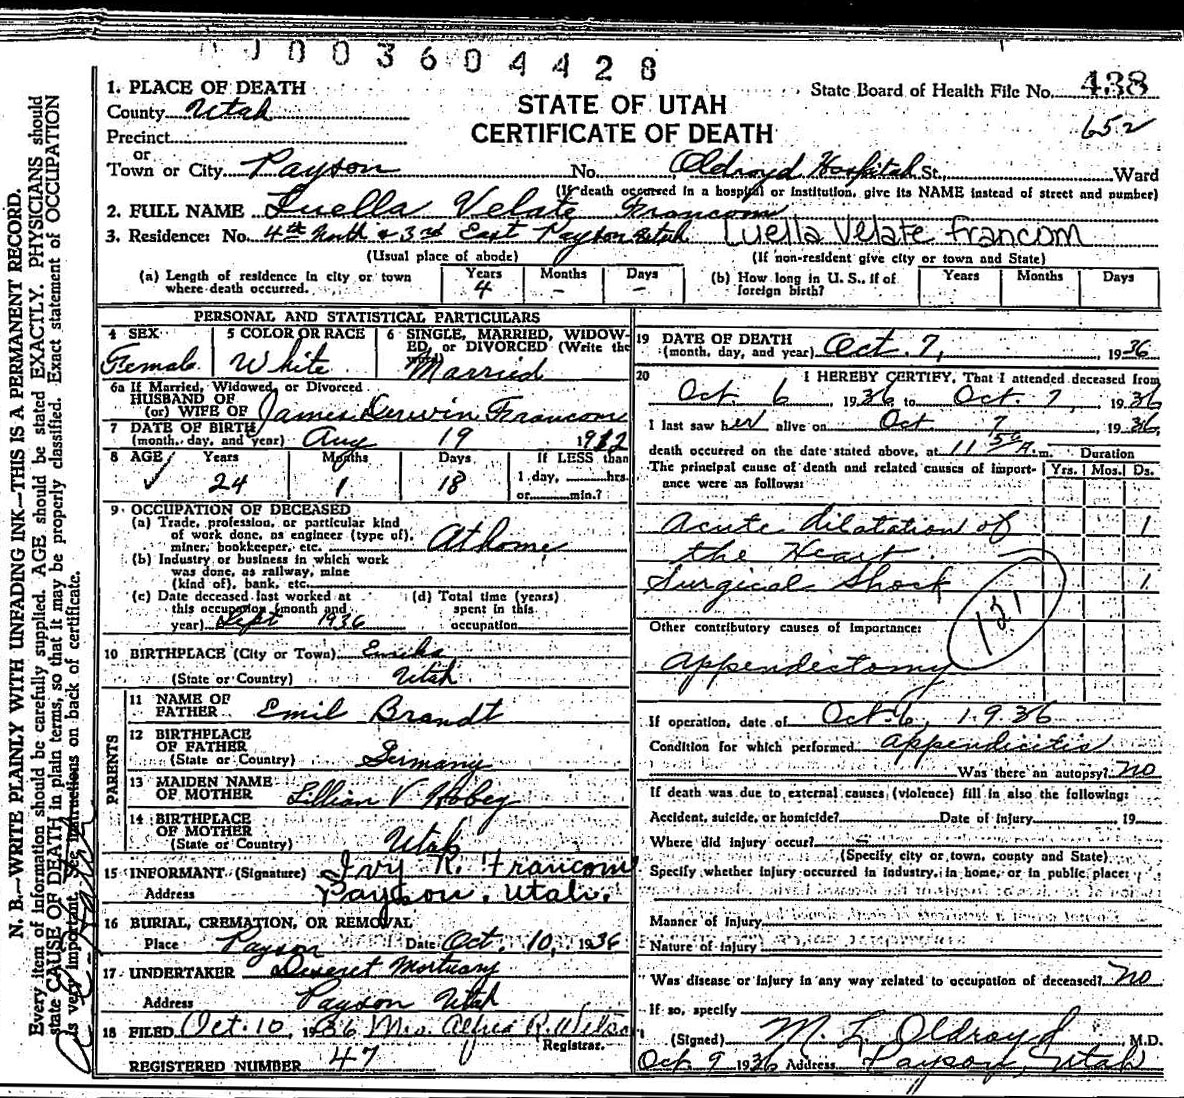 0 0 3 6 0 4 4 2 8
1. PLACE OF DEATH
County Utah
Precinct
or
Town or City Payson No. Oldroyd Hospital St., Ward
(If death occurred in a hospital or institution, give its NAME instead of street and number)
STATE OF UTAH
CERTIFICATE OF DEATH
State Board of Health File No. 438
652
2. FULL NAME Luella Velate Francom
3. Residence: No. 4th North & 3rd East Payson Utah Luella Velate Francom
(Usual place of abode) (If non-resident give city or town and State)
(a) Length of residence in city or town where death occurred. Years 4 Months - Days -
(b) How long in U. S., if of foreign birth? Years Months Days
PERSONAL AND STATISTICAL PARTICULARS
4 SEX Female
5 COLOR OR RACE White
6 SINGLE, MARRIED, WIDOWED, or DIVORCED (Write the word) Married
6a If Married, Widowed, or Divorced
HUSBAND OF
(or) WIFE OF James Derwin Francom
7 DATE OF BIRTH
(month, day, and year) Aug 19
8 AGE Years 24 Months 1 Days 18
If LESS than
1 day, hrs.
or min.?
9 OCCUPATION OF DECEASED
(a) Trade, profession, or particular kind
of work done, as engineer (type of),
miner, bookkeeper, etc. At home
(b) Industry or business in which work
was done, as railway, mine
(kind of), bank, etc.
(c) Date deceased last worked at
this occupation (month and
year) Sept 1936
(d) Total time (years)
spent in this
occupation
10 BIRTHPLACE (City or Town) Eureka
(State or Country) Utah
PARENTS
11 NAME OF
FATHER Emil Brandt
12 BIRTHPLACE
OF FATHER
(State or Country) Germany
13 MAIDEN NAME
OF MOTHER Lillian V
14 BIRTHPLACE
OF MOTHER
(State or Country) Utah
15 INFORMANT (Signature) Ivy R. Francom
Address Payson, Utah.
16 BURIAL, CREMATION, OR REMOVAL
Place Payson Date Oct. 10, 1936
17 UNDERTAKER Deseret Mortuary
Address Payson Utah
18 FILED Oct. 10, 1936 Mrs. Alfred R. Wilson
Registrar.
REGISTERED NUMBER 47
19 DATE OF DEATH
(month, day, and year) Oct. 7, 1936
20 I HEREBY CERTIFY, That I attended deceased from
Oct. 6, 1936 to Oct. 7, 1936
I last saw her alive on Oct 7, 1936,
death occurred on the date stated above, at 11 50 A.m. Duration
The principal cause of death and related causes of importance were as follows: Yrs. Mos. Ds.
Acute dilatation of 1
the Heart.
Surgical Shock 1
Other contributory causes of importance:
Appendectomy
121
If operation, date of Oct. 6, 1936
Condition for which performed Appendicitis
Was there an autopsy? no
If death was due to external causes (violence) fill in also the following:
Accident, suicide, or homicide? Date of Injury 19
Where did injury occur?
(Specify city or town, county and State)
Specify whether injury occurred in industry, in home, or in public place:
Manner of Injury
Nature of injury
Was disease or injury in any way related to occupation of deceased? no
If so, specify
(Signed) M. L. Oldroyd, M.D.
Oct 9 1936 Address Payson, Utah
N. B.—WRITE PLAINLY WITH UNFADING INK—THIS IS A PERMANENT RECORD.
Every item of information should be carefully supplied. AGE should be stated EXACTLY. PHYSICIANS should
state CAUSE OF DEATH in plain terms, so that it may be properly classified. Exact statement of OCCUPATION
is very important. See instructions on back of certificate.